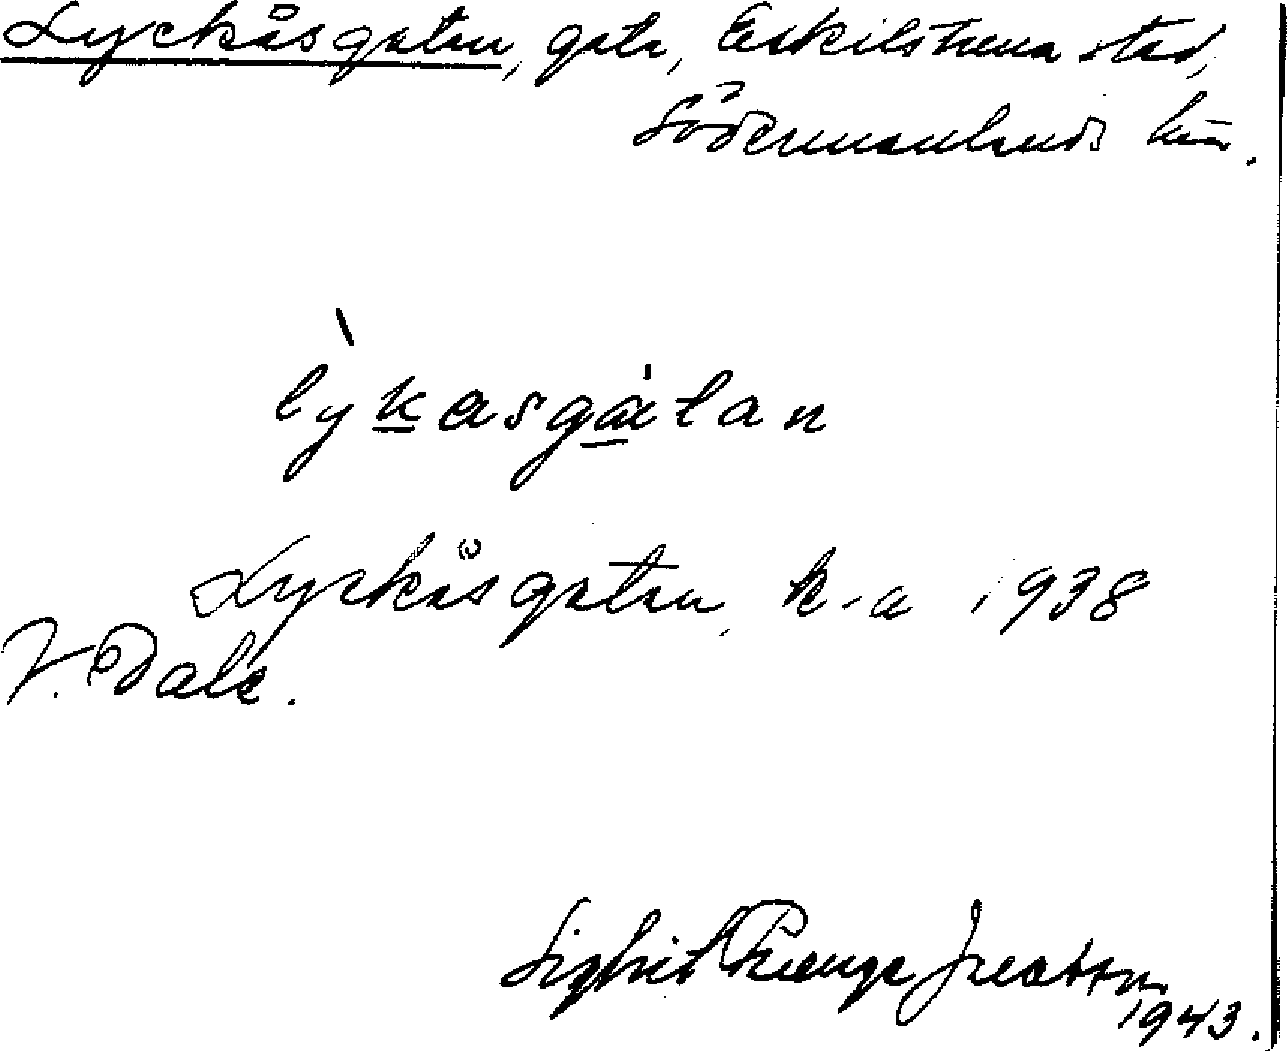 Lyckåsgatan, gata, Eskilstuna stad,
Södermanlands län.
lỳkasgátan
Lyckåsgatan, k-a 1938
V. Dale.
Sigbrit
1943.